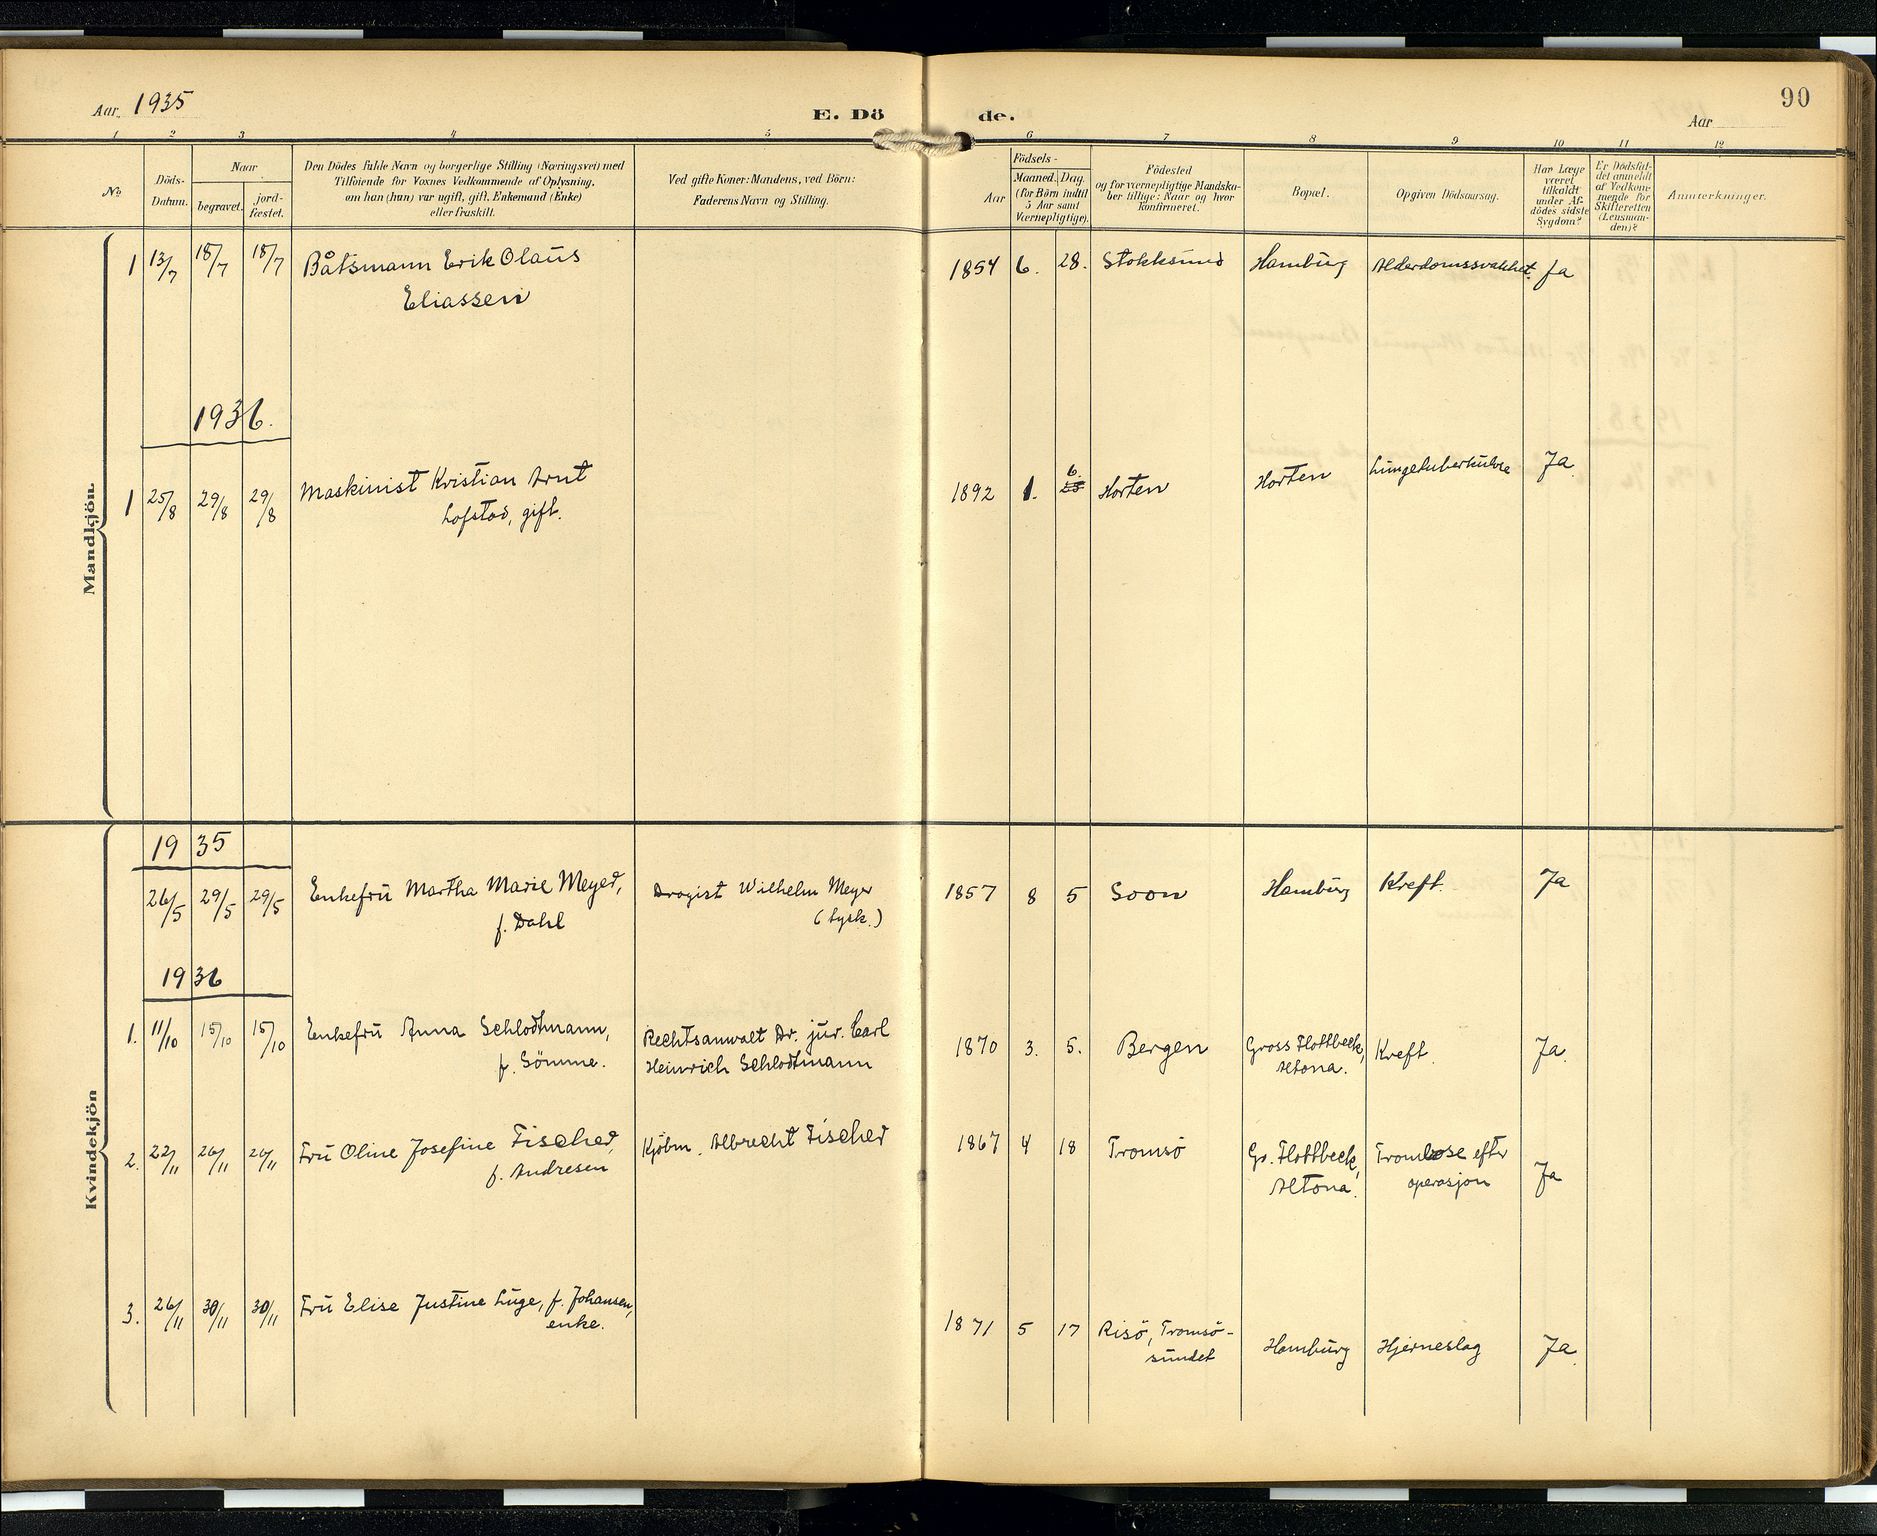 Aar 1935
E. Dö de.
90
Aar
1 2 3 4 5 6 7 8 9 10 11 12
No
Döds-
Datum.
Naar
begravet.
jord-
fæstet.
Den Dödes fulde Navn og borgerlige Stilling (Næringsvei) med
Tilföiende for Voxnes Vedkommende af Oplysning,
om han (hun) var ugift, gift, Enkemand (Enke)
eller fraskilt.
Ved gifte Koner: Mandens, ved Börn:
Faderens Navn og Stilling.
Födsels-
Aar
Maaned. Dag.
(for Börn indtil
5 Aar samt
Værnepligtige).
Födested
og for værnepligtige Mandska-
ber tillige: Naar og hvor
konfirmeret.
Bopæl.
Opgiven Dödsaarsag.
Har Læge
været
tilkaldt
under Af-
dödes sidste
Sygdom?
Er Dödsfal-
det anmeldt
af Vedkom-
mende for
Skifteretten
(Lensman-
den)?
Anmerkninger.
Mandkjön.
1 13/7 18/7 18/7 Båtsmann Erik Olaus 1854 6. 28. Stokksund Hamburg Alderdomssvakhet. Ja
Eliassen
1936.
1 25/8 29/8 29/8 Maskinist Kristian Arnt 1892 1. 6. Horten Horten Lungetuberkulose Ja
Lofstad, gift.
Kvindekjön
1935
26/5 29/5 29/5 Enkefru Martha Marie Meyer, Drogist Wilhelm Meyer 1857 8 5 Soon Hamburg Kreft. Ja
f. Dahl (tysk.)
1936
1. 11/10 15/10 15/10 Enkefru Anna Schlodtmann, Rechtsanwalt Dr. jur. Carl 1870 3. 5. Bergen Gross Flottbeck, Kreft. Ja.
f. Sömme. Heinrich Schlodtmann Altona.
2. 22/11 26/11 26/11 Fru Oline Josefine Fischer, Kjöbm. Albrecht Fischer 1867 4 18 Tromsö Gr. Flottbeck, Trombose efter Ja
f. Andresen Altona. operasjon
3. 26/11 30/11 30/11 Fru Elise Justine Luge, f. Johansen, 1871 5 17 Risö, Tromsö- Hamburg Hjerneslag Ja.
enke. sundet